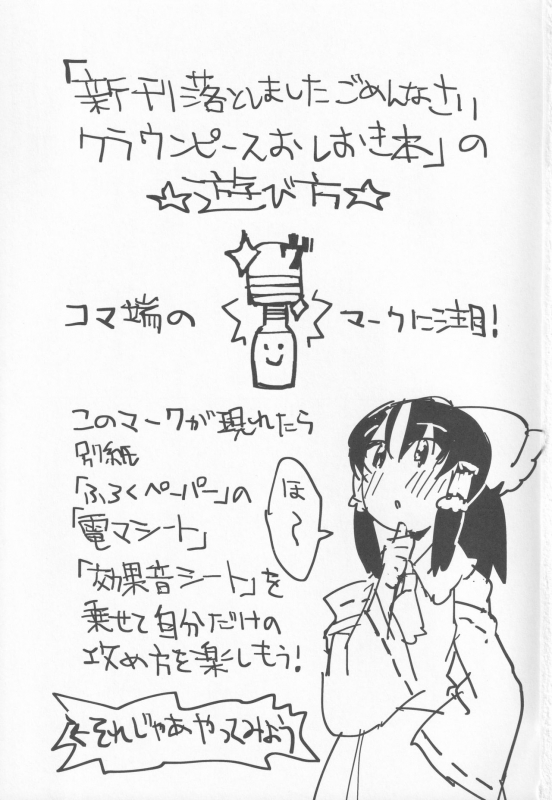 「新刊落としましたごめんなさい
クラウンピースおしおき本」の
☆遊び方☆
コマ端の
マークに注目!
このマークが現れたら
別紙
「ふろくペーパー」の
「電マシート」
「効果音シート」を
乗せて自分だけの
攻め方を楽しもう!
ほ〜
←それじゃあやってみよう